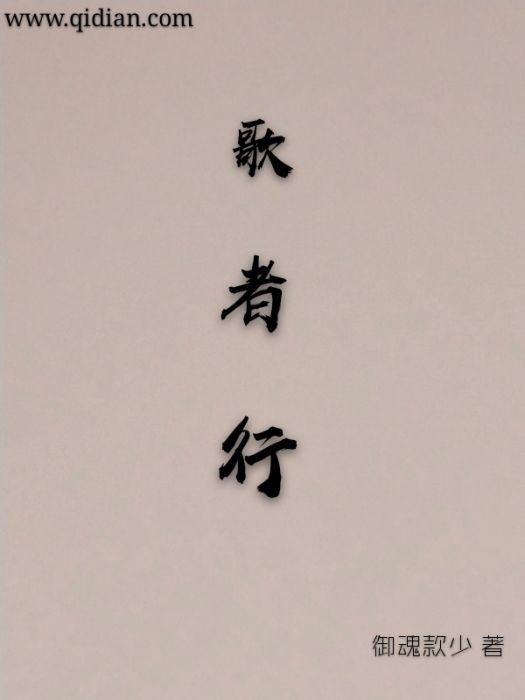 www.qidian.com
歌者行
御魂款少 著